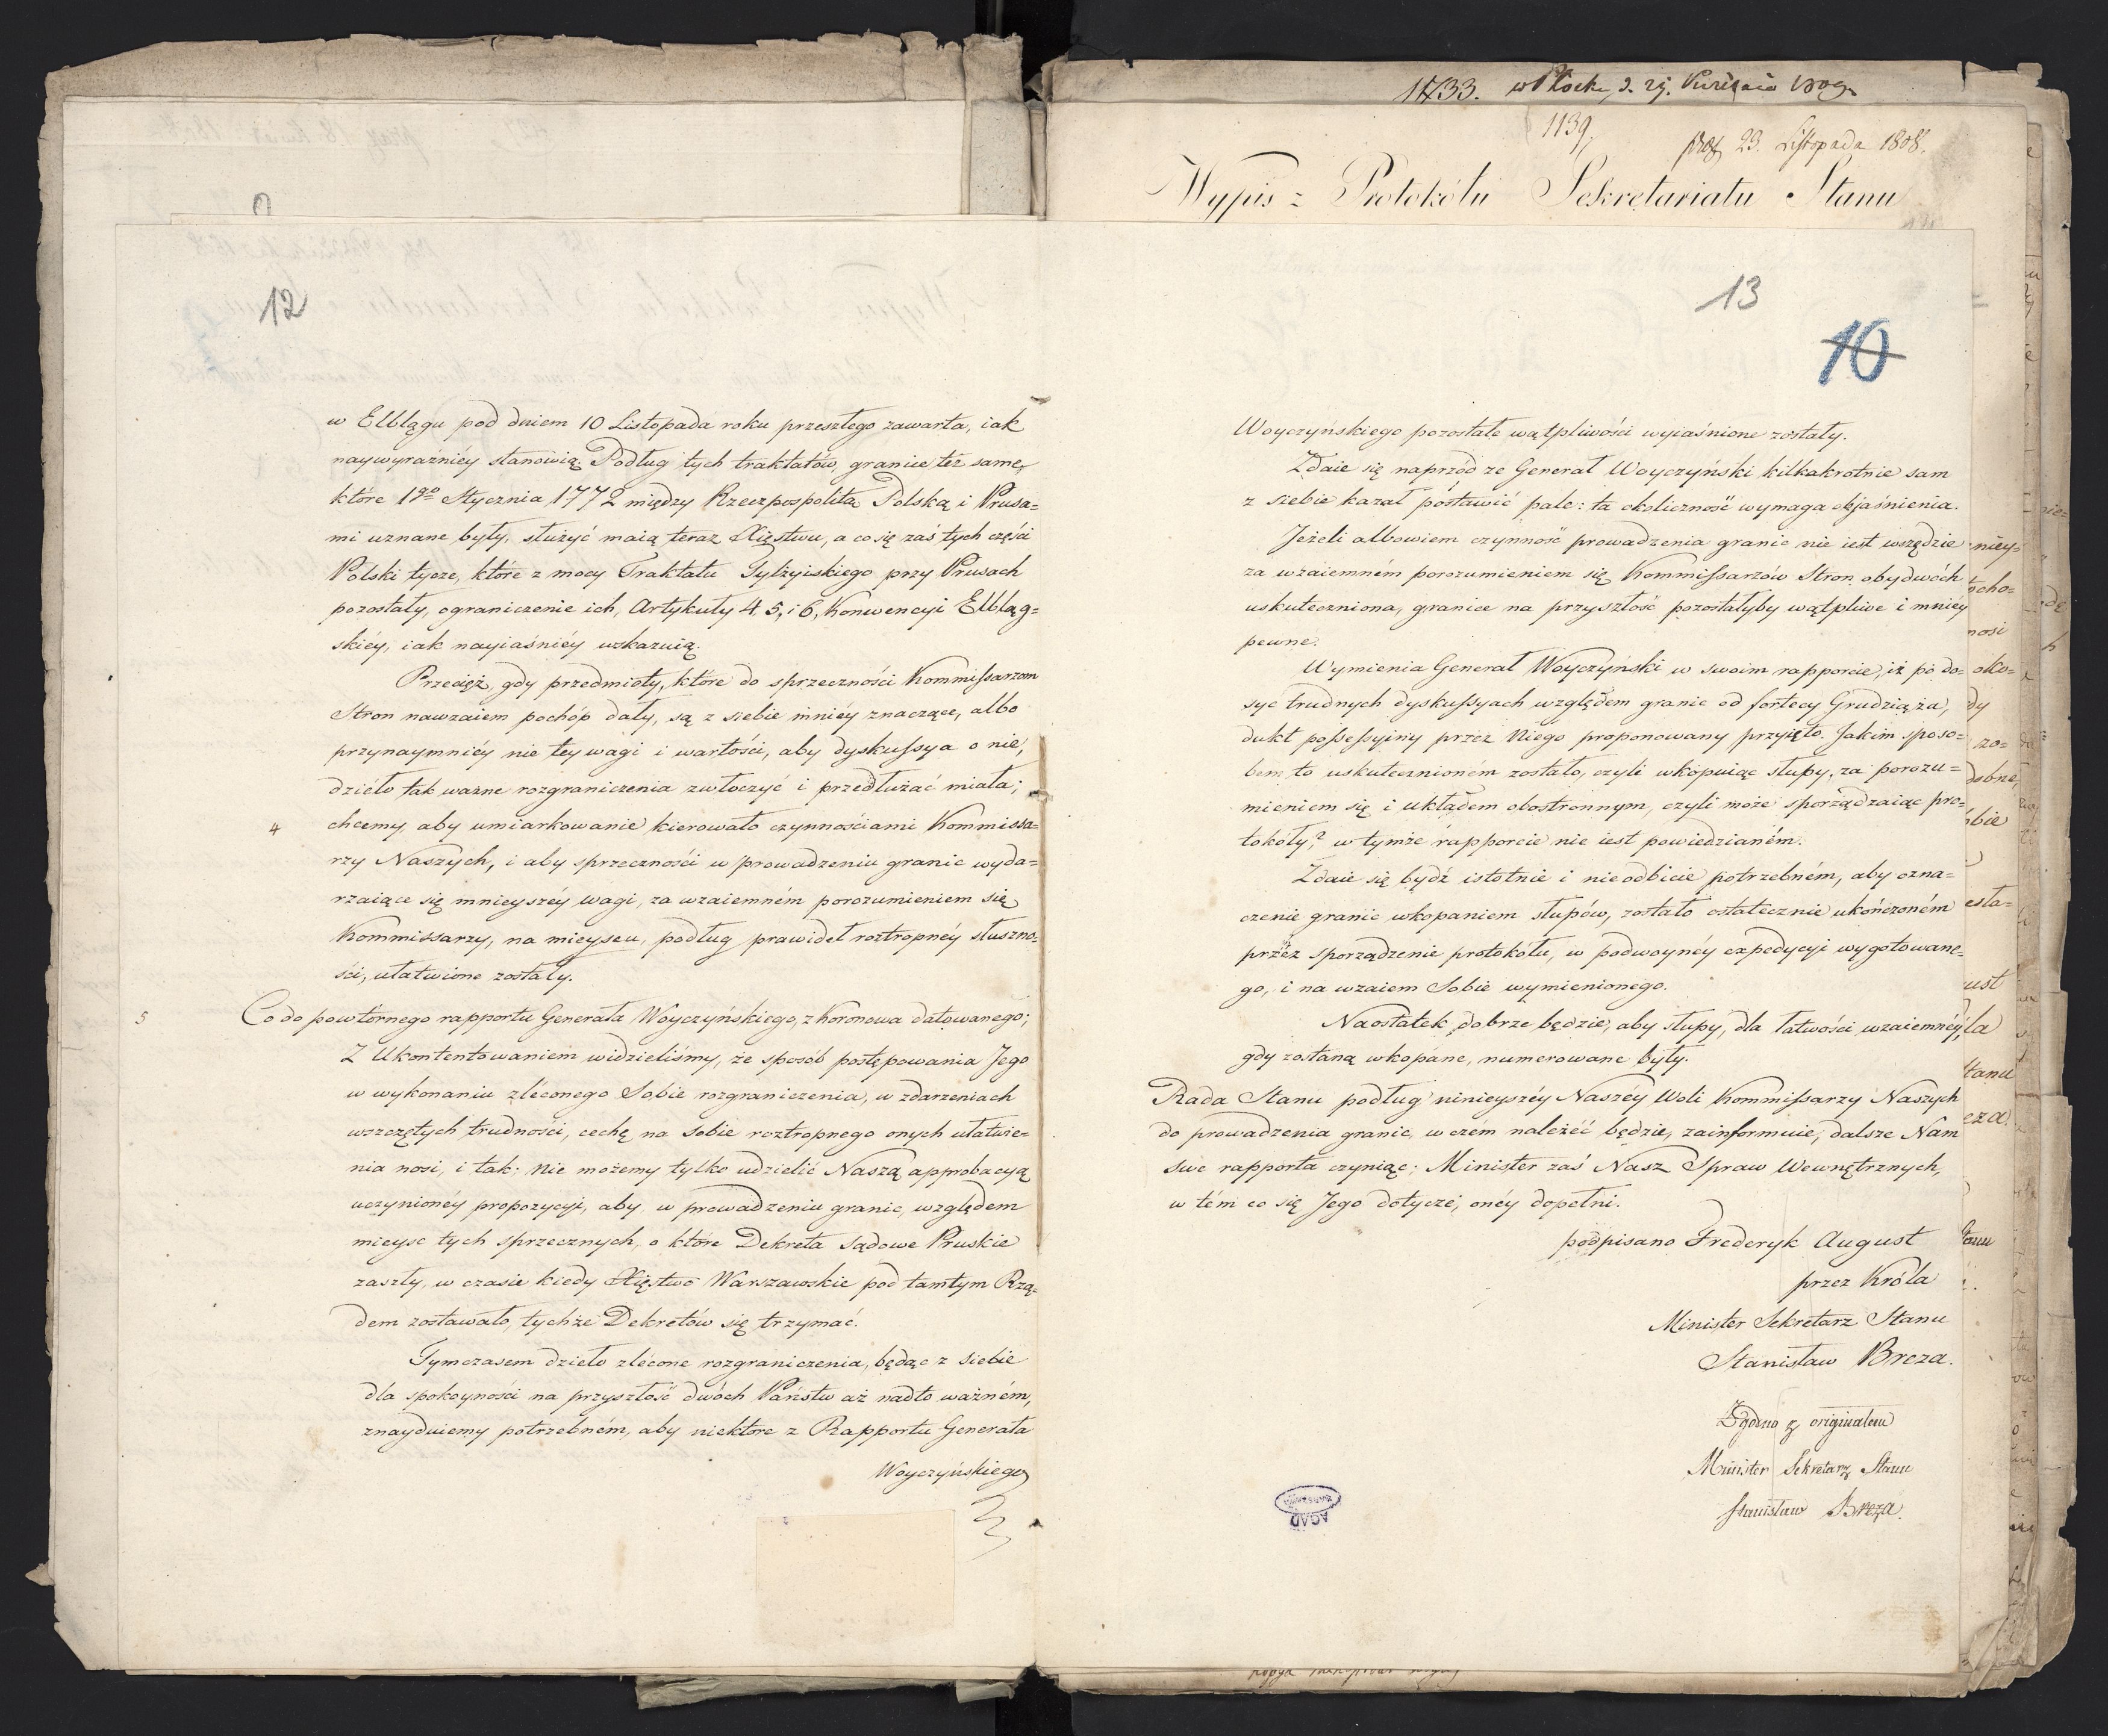 12
w Elblągu pod dniem 10 Listopada roku przeszłego zawarta, iak
naywyraźniéy stanowią. Podług tych traktatów, granice też same,
które 1go Stycznia 1772 między Rzecząpospolitą Polską i Prusa=
mi uznane były, służyć maią teraz Xięstwu, a co się zaś tych części
Polski tycze, które z mocy Traktatu Tylżyiskiego przy Prusach
pozostały, ograniczenie ich, Artykuły 4. 5, i 6, Konwencyi Elbląg=
skiéy, iak nayiaśniéy wskazuią.
Przecięż, gdy przedmioty, które do sprzeczności Kommissarzom
Stron nawzaiem pochóp dały, są z siebie mniéy znaczące, albo
przynaymniéy nie tey wagi i wartości, aby dyskussya o nie,
dzieło tak ważne rozgraniczenia zwłoczyć i przedłużać miała;
4 chcemy, aby umiarkowanie kierowało czynnościami Kommissa=
rzy Naszych, i aby sprzeczności w prowadzeniu granic wyda=
rzaiące się mnieyszéy wagi, za wzaiemném porozumieniem się
Kommissarzy, na mieyscu, podług prawideł roztropnéy słuszno=
ści, ułatwione zostały.
5 Co do powtórnego rapportu Generała Woyczyńskiego, z Koronowa datowanego;
Z Ukontentowaniem widzieliśmy, że sposób postępowania Jego
w wykonaniu zléconego Sobie rozgraniczenia, w zdarzeniach
wszczętych trudności, cechę na sobie roztropnego onych ułatwie=
nia nosi, i tak; nie możemy tylko udzielić Naszą approbacyą
uczynionéy propozycyi, aby w prowadzeniu granic, względem
mieysc tych sprzecznych, o które Dekreta sądowe Pruskie
zaszły, w czasie kiedy Xięstwo Warszawskie pod tamtym Rzą=
dem zostawało, tychże Dekretów się trzymać.
Tymczasem dzieło zlécone rozgraniczenia, będąc z siebie
dla spokoyności na przyszłość dwóch Państw aż nadto ważném,
znayduiemy potrzebném, aby niektóre z Rapportu Generała
Woyczyńskiego
1733. w Płocku, d. 29. Kwietnia 1809.
1139.
23. Listopada 1808.
Wypis z Protokółu Sekretariatu Stanu
13
10
Woyczyńskiego pozostałe wątpliwości wyiaśnione zostały.
Zdaie się naprzód, że Generał Woyczyński kilkakrotnie sam
z siebie kazał postawić pale: ta okoliczność wymaga objaśnienia.
Jeżeli albowiem czynność prowadzenia granic nie iest wszędzie
za wzaiemném porozumieniem się Kommissarzów Stron obydwóch
uskuteczniona, granice na przyszłość pozostałyby wątpliwe i mniéy
pewne.
Wymienia Generał Woyczyński w swoim rapporcie, iż po do=
syć trudnych dyskussyach względem granic od fortecy Grudziąża,
dukt possessyiny przez Niego proponowany przyięto. Jakim sposo=
bem, to uskutecznioném zostało, czyli wkopuiąc słupy, za porozu=
mieniem się i układem obostronnym, czyli może sporządzaiąc pro=
tokóły? w tymże rapporcie nie iest powiedzianém.
Zdaie się bydź istotnie i nieodbicie potrzebném, aby ozna=
czenie granic wkopaniem słupów, zostało ostatecznie ukończoném
przez sporządzenie protokółu, w podwoynéy expedycyi wygotowane=
go, i na wzaiem Sobie wymienionego.
Naostatek dobrze będzie, aby słupy, dla łatwości wzaiemnéy,
gdy zostaną wkopane, numerowane były.
Rada Stanu podług ninieyszéy Naszéy Woli Kommissarzy Naszych
do prowadzenia granic, w czém należéć będzie, zainformuie, dalsze Nam
swe rapporta czyniąc; Minister zaś Nasz Spraw Wewnętrznych,
w tém co się Jego dotycze, onéy dopełni.
podpisano Frederyk August
przez Króla
Minister Sekretarz Stanu
Stanisław Breza.
Zgodno z originałem
Minister Sekretarz Stanu
Stanisław Breza.
AGAD